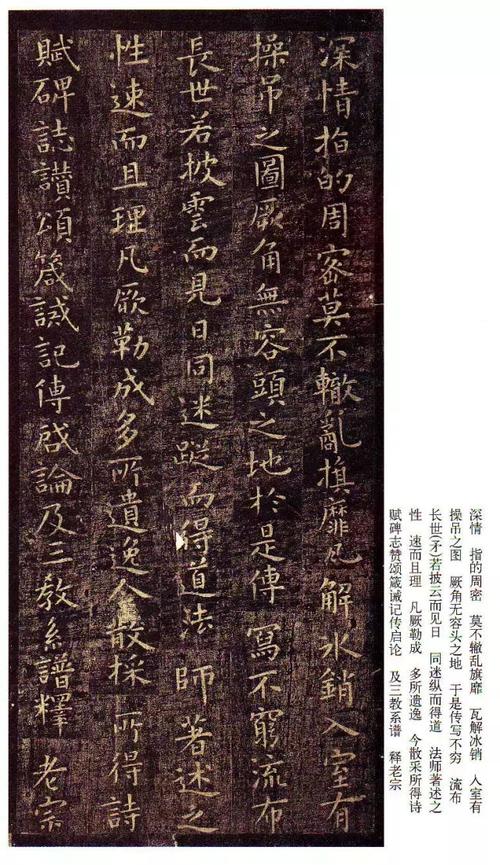 深情指的周密莫不辙亂旗靡瓦解水銷入室有
操吊之圖厥角無容頭之地於是傳寫不窮流布
長世若披雲而見日同迷蹤而得道法師著述之
性速而且理凡厥勒成多所遺逸今散採所得詩
賦碑誌讃頌箴誡記傳啟論及三教系譜釋老宗
深情 指的周密 莫不辙乱旗靡 瓦解冰销 入室有
操吊之图 厥角无容头之地 于是传写不穷 流布
长世(矛)若披云而见日 同迷纵而得道 法师著述之
性 速而且理 凡厥勒成 多所遗逸 今散采所得诗
赋碑志赞颂箴诫记传启论 及三教系谱 释老宗